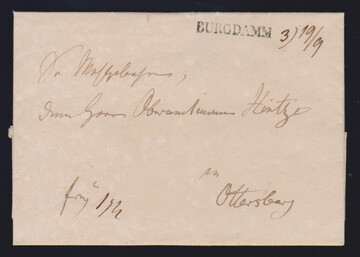 BURGDAMM
3) 19/9
Sr Wohlgeboren,
dem Herrn Oberamtmann Hintze
in
Ottersberg